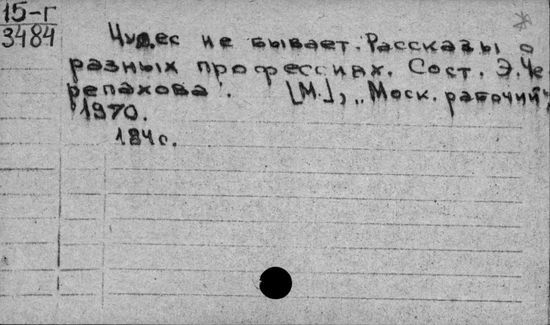 15-г
3484
Чудес не бывает. Рассказы о
разных профессиях. Сост. Э. Че
репахова. [М.], „Моск. рабочий",
1970.
184 с.